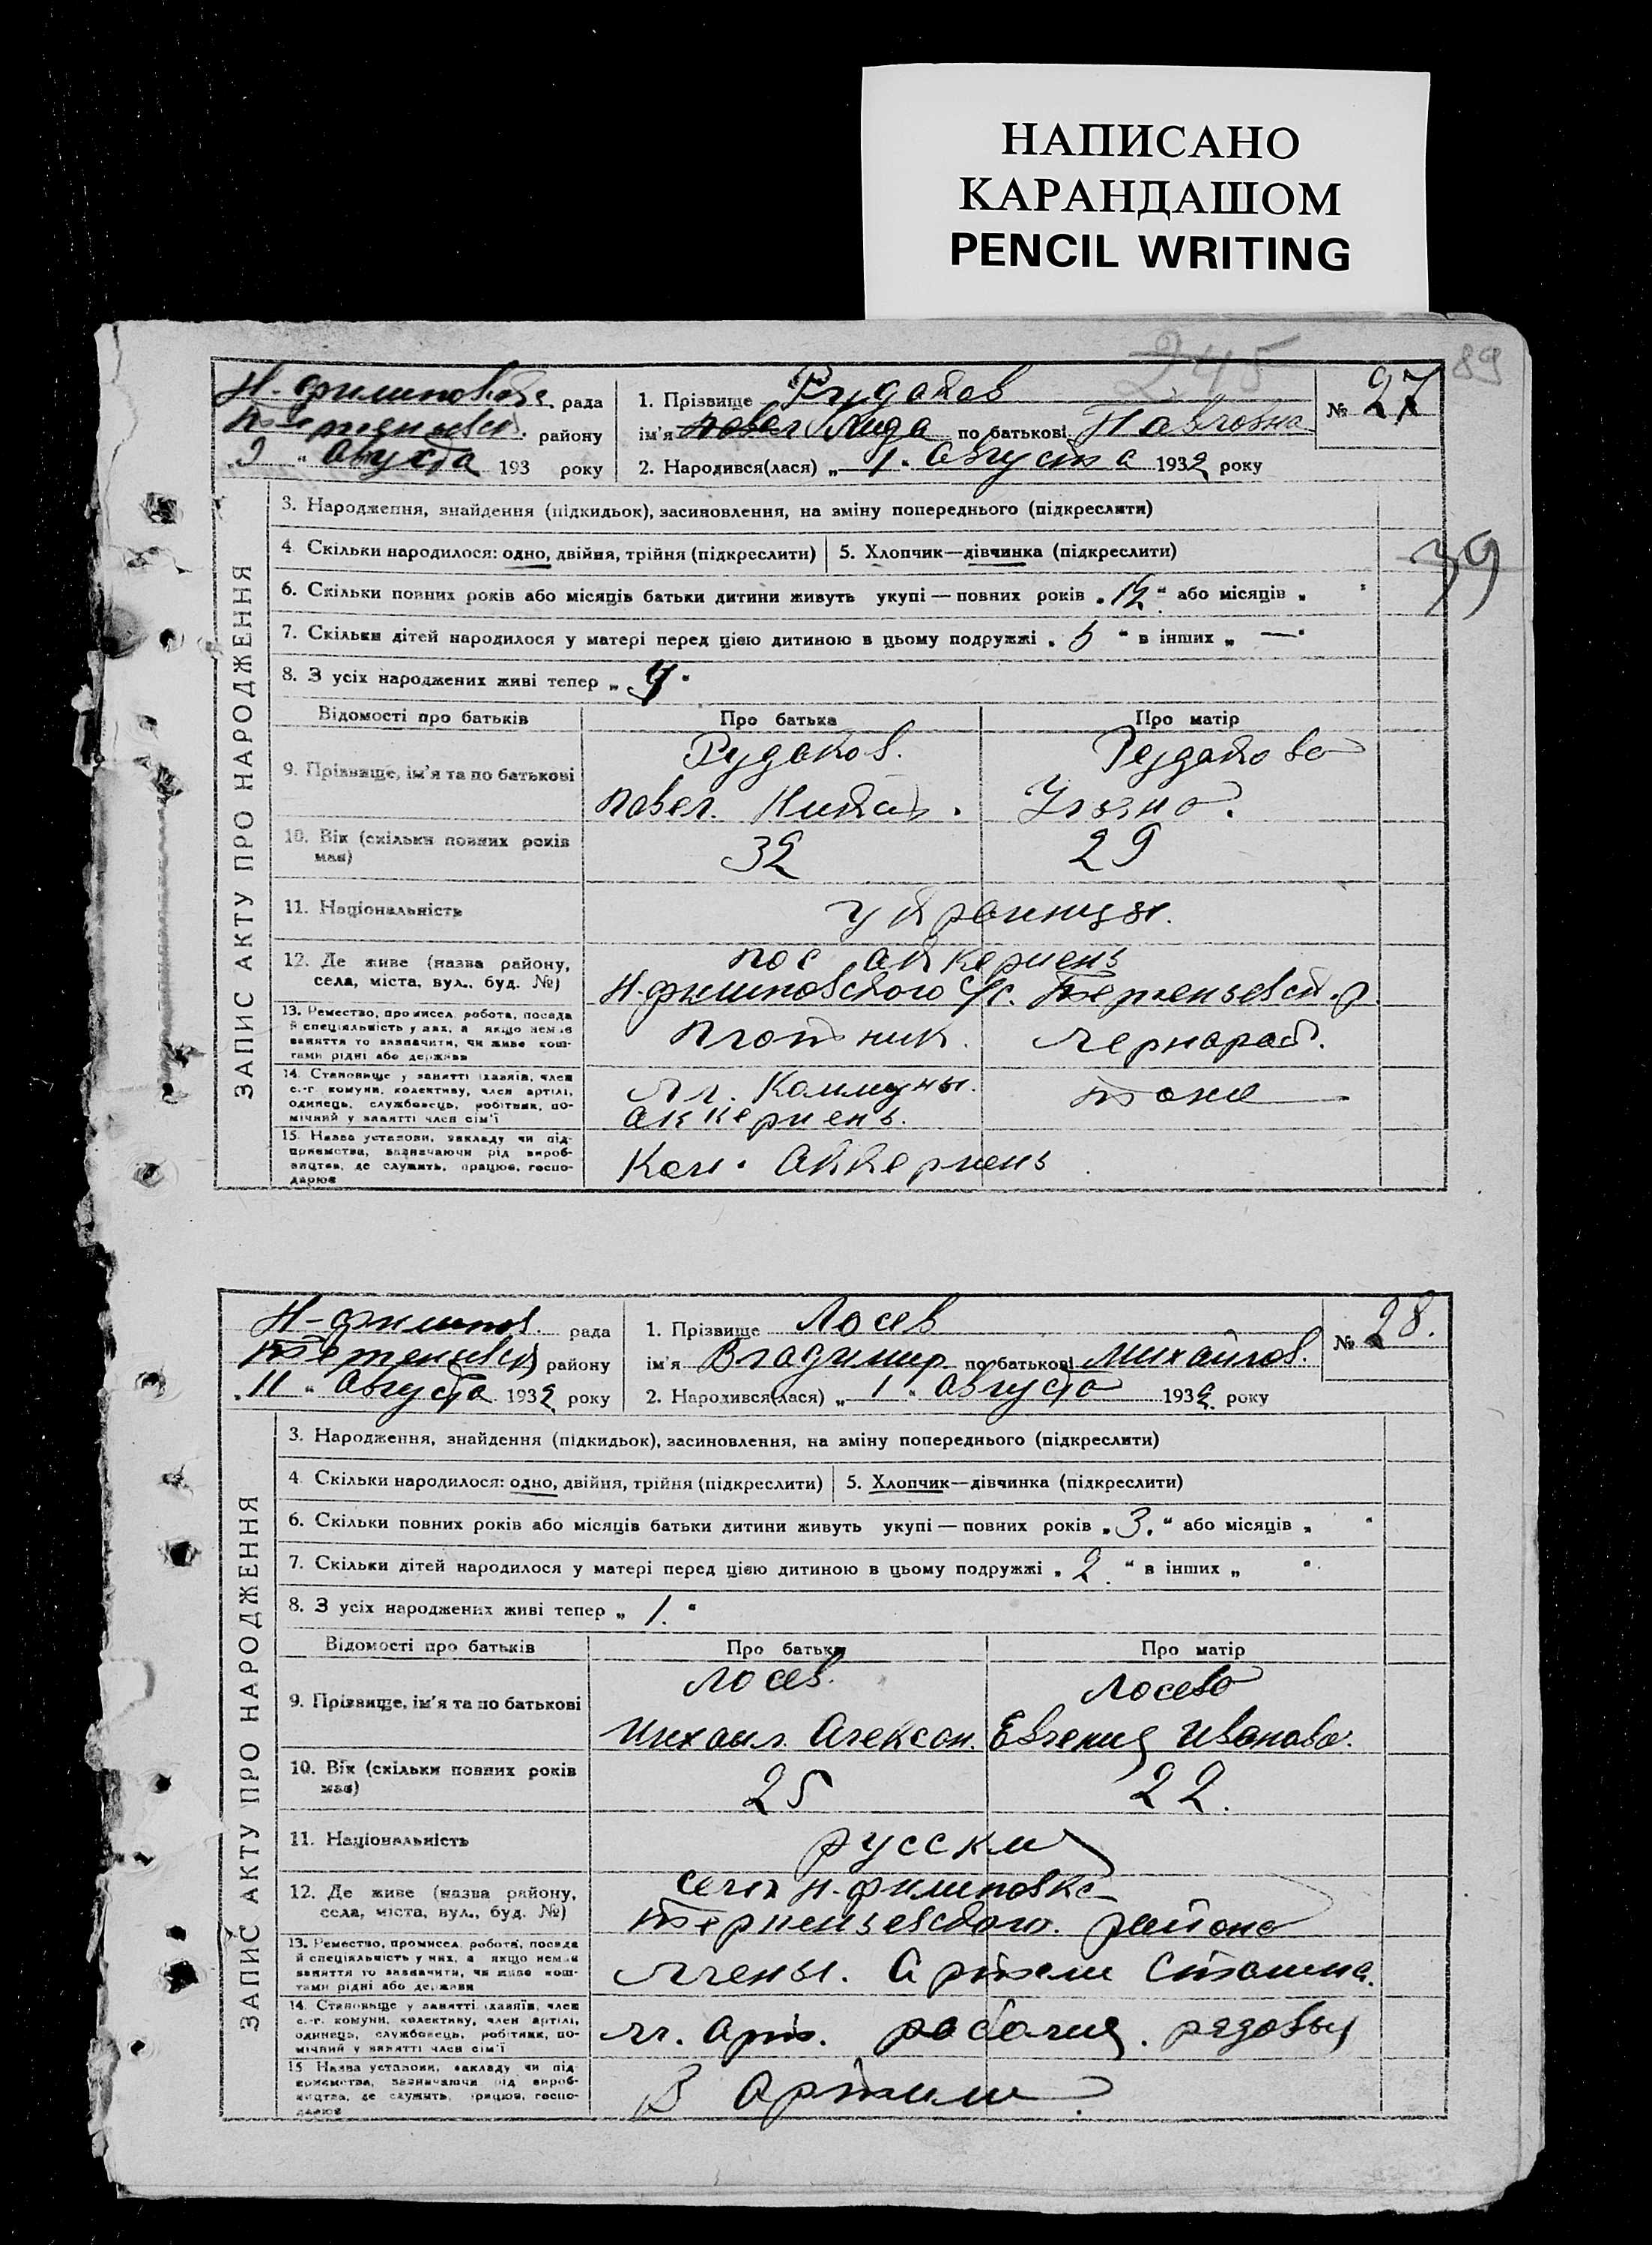 НАПИСАНО
КАРАНДАШОМ
PENCIL WRITING
245 89
рада 1. Прізвище № 27
району ім'я Павел Лида по батькові Павловна
Августа 193 року 2. Народився(лася) „ 1 “ Августа 1932 року
39
ЗАПИС АКТУ ПРО НАРОДЖЕННЯ
3. Народження, знайдення (підкидьок), засиновлення, на зміну попереднього (підкреслити)
4. Скільки народилося: одно, двійня, трійня (підкреслити) 5. Хлопчик—дівчинка (підкреслити)
6. Скільки повних років або місяців батьки дитини живуть укупі — повних років „ 12 “ або місяців „ “
7. Скільки дітей народилося у матері перед цією дитиною в цьому подружжі „ 5 “ в інших „ — “
8. З усіх народжених живі тепер „ “
Відомості про батьків Про батька Про матір
9. Прізвище, ім'я та по батькові Рудаков. Рудакова
Павел. Никит. Ульяна.
10. Вік (скільки повних років має) 32 29
11. Національність украинцы.
12. Де живе (назва району, села, міста, вул., буд. №) пос Аккермень
Н. Филиповского с/с. р.
13. Ремество, промисел, робота, посада й спеціяльність у них, а якщо немає заняття то зазначити, чи живе коштами рідні або держави плотник. чернораб.
14. Становище у занятті (хазяїн, член с.-г. комуни, колективу, член артілі, одинець, службовець, робітник, помічний у занятті член сім'ї чл. Коммуны. тоже
Аккермень.
15. Назва установи, закладу чи підприємства, зазначаючи рід виробництва, де служить, працює, господарює Ком. Аккермень
Н-Филипов. рада 1. Прізвище Лосев № 28.
району ім'я Владимир по батькові Михайлов.
„ 11 “ Августа 1932 року 2. Народився(лася) „ 1 “ Августа 1932 року
ЗАПИС АКТУ ПРО НАРОДЖЕННЯ
3. Народження, знайдення (підкидьок), засиновлення, на зміну попереднього (підкреслити)
4. Скільки народилося: одно, двійня, трійня (підкреслити) 5. Хлопчик—дівчинка (підкреслити)
6. Скільки повних років або місяців батьки дитини живуть укупі — повних років „ 3. “ або місяців „ “
7. Скільки дітей народилося у матері перед цією дитиною в цьому подружжі „ 2. “ в інших „ “
8. З усіх народжених живі тепер „ 1. “
Відомості про батьків Про батька Про матір
9. Прізвище, ім'я та по батькові Лосев. Лосева
Михаил. Алексан. Евгения Иванова.
10. Вік (скільки повних років має) 25 22.
11. Національність русски
12. Де живе (назва району, села, міста, вул., буд. №) Село Н. Филиповка
района
13. Ремество, промисел, робота, посада й спеціяльність у них, а якщо немає заняття то зазначити, чи живе коштами рідні або держави Члены. Артели Сталина.
14. Становище у занятті (хазяїн, член с.-г. комуни, колективу, член артілі, одинець, службовець, робітник, помічний у занятті член сім'ї чл. Арт. рядовы
15. Назва установи, закладу чи підприємства, зазначаючи рід виробництва, де служить, працює, господарює В Артили